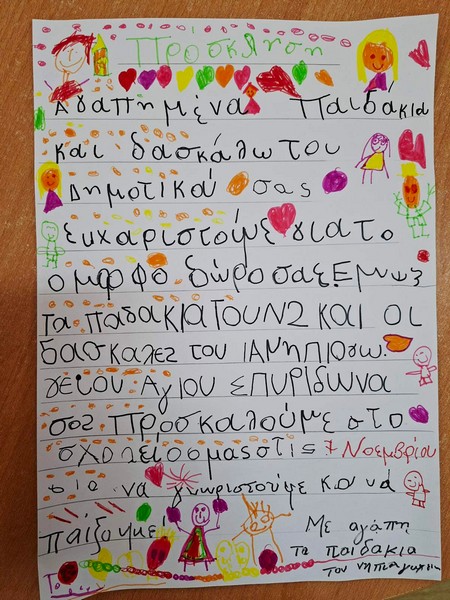 Πρόσκληση
Αγαπημένα Παιδάκια
και δασκάλω του
Δημοτικού σας
ευχαριστούμε για το
ομορφο δώρο σας. Εμυς
τα παδακια τουν2 και οι
δασκαλες του
γειου Αγιου Σπυρίδωνα
σας Προσκαλούμε στο
σχολείο μας στις 7 Νοεμβρίου
να γνωριστούμε και να
παίξουμε
Με αγάπη
τα παιδάκια
του νηπιαγωγείου